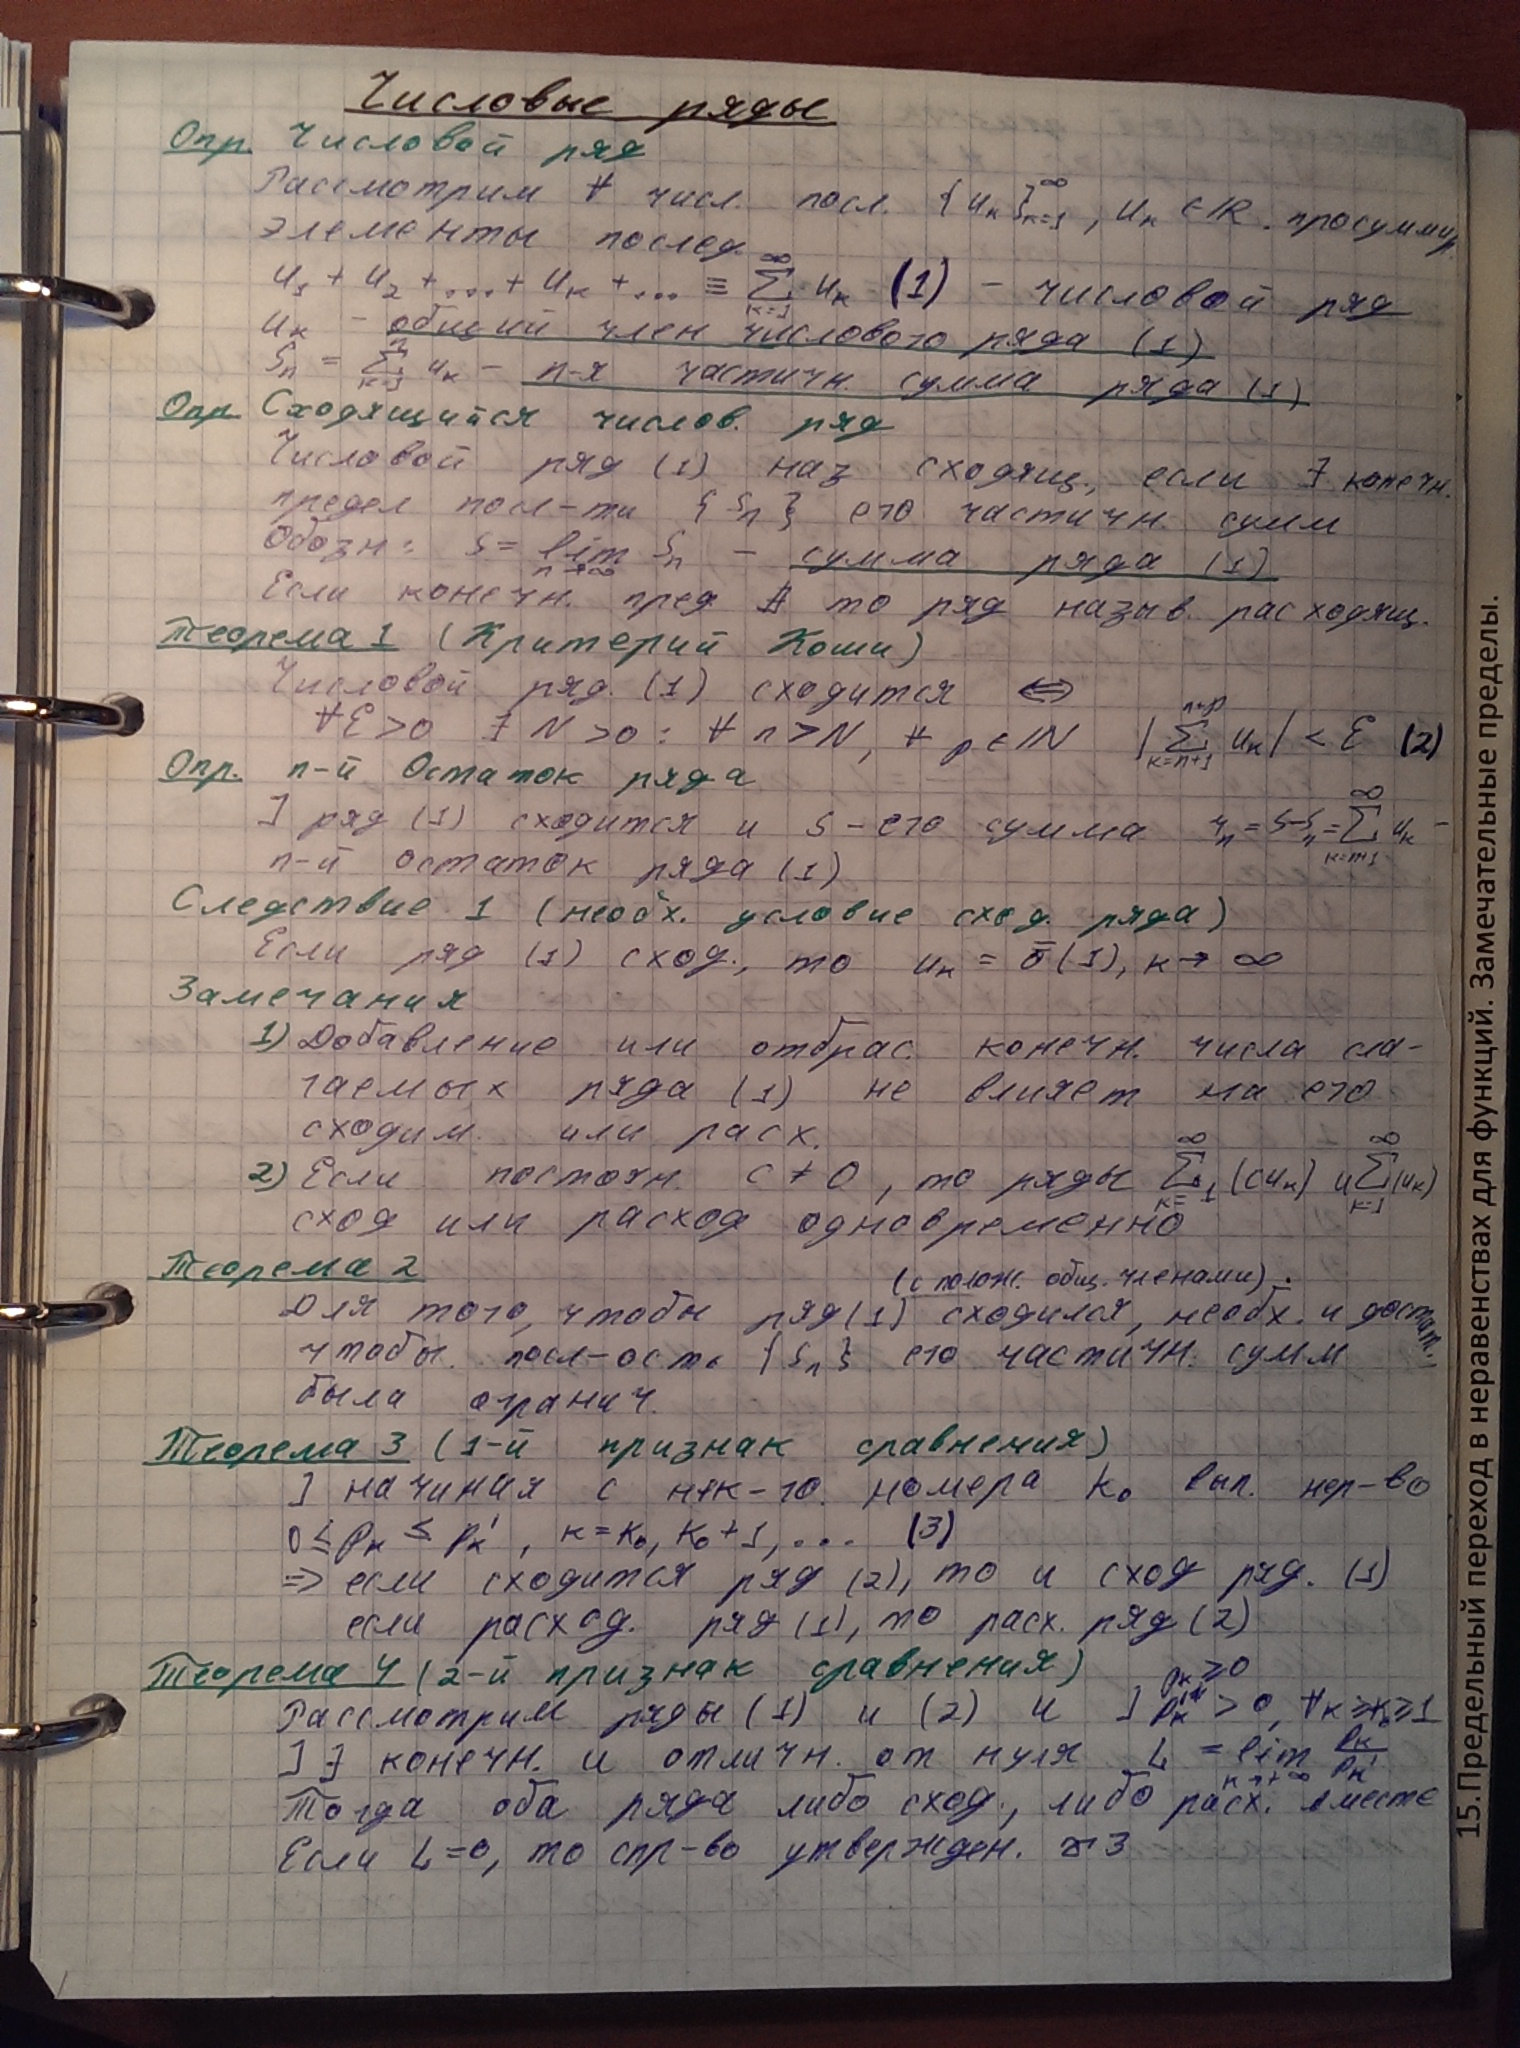 Числовые ряды
Опр. Числовой ряд
Рассмотрим ∀ числ. посл. {uₖ}ₖ₌₁^∞, uₖ ∈ ℝ. просуммир.
элементы послед.
u₁ + u₂ + ... + uₖ + ... ≡ ∑ₖ₌₁^∞ uₖ (1) - числовой ряд
uₖ - общий член числового ряда (1)
Sₙ = ∑ₖ₌₁ⁿ uₖ - n-я частичн. сумма ряда (1)
Опр Сходящийся числов. ряд
Числовой ряд (1) наз сходящ., если ∃ конечн.
предел посл-ти {Sₙ} его частичн. сумм
Обозн: S = lim_{n→∞} Sₙ - сумма ряда (1)
Если конечн. пред ∄ то ряд назыв. расходящ.
Теорема 1 (Критерий Коши)
Числовой ряд (1) сходится ⇔
∀ε>0 ∃ N>0: ∀ n>N, ∀ p∈ℕ |∑ₖ₌ₙ₊₁ⁿ⁺ᵖ uₖ| < ε (2)
Опр. n-й Остаток ряда
] ряд (1) сходится и S - его сумма rₙ = S-Sₙ = ∑ₖ₌ₙ₊₁^∞ uₖ -
n-й остаток ряда (1)
Следствие 1 (необх. условие сход. ряда)
Если ряд (1) сход., то uₖ = ō(1), к → ∞
Замечания
1) Добавление или отбрас. конечн. числа сла-
гаемых ряда (1) не влияет на его
сходим. или расх.
2) Если постоян. c ≠ 0, то ряды ∑ₖ₌₁^∞ (cuₖ) и ∑ₖ₌₁^∞ (uₖ)
сход или расход одновременно
Теорема 2
(с полож. общ. членами).
Для того, чтобы ряд (1) сходился, необх. и достат.,
чтобы посл-ость {Sₙ} его частичн. сумм
была огранич.
Теорема 3 (1-й признак сравнения)
] начиная с нек-го. номера k₀ вып. нер-во
0 ≤ pₖ ≤ pₖ', к = к₀, к₀+1, ... (3)
⇒ если сходится ряд (2), то и сход ряд. (1)
если расход. ряд (1), то расх. ряд (2)
Теорема 4 (2-й признак сравнения)
pₖ ≥ 0
Рассмотрим ряды (1) и (2) и ] pₖ' > 0, ∀к ≥ к₀ ≥ 1
] ∃ конечн. и отличн. от нуля L = lim_{к→+∞} pₖ/pₖ'
Тогда оба ряда либо сход., либо расх. вместе
Если L=0, то спр-во утвержден. т 3
15.Предельный переход в неравенствах для функций. Замечательные пределы.